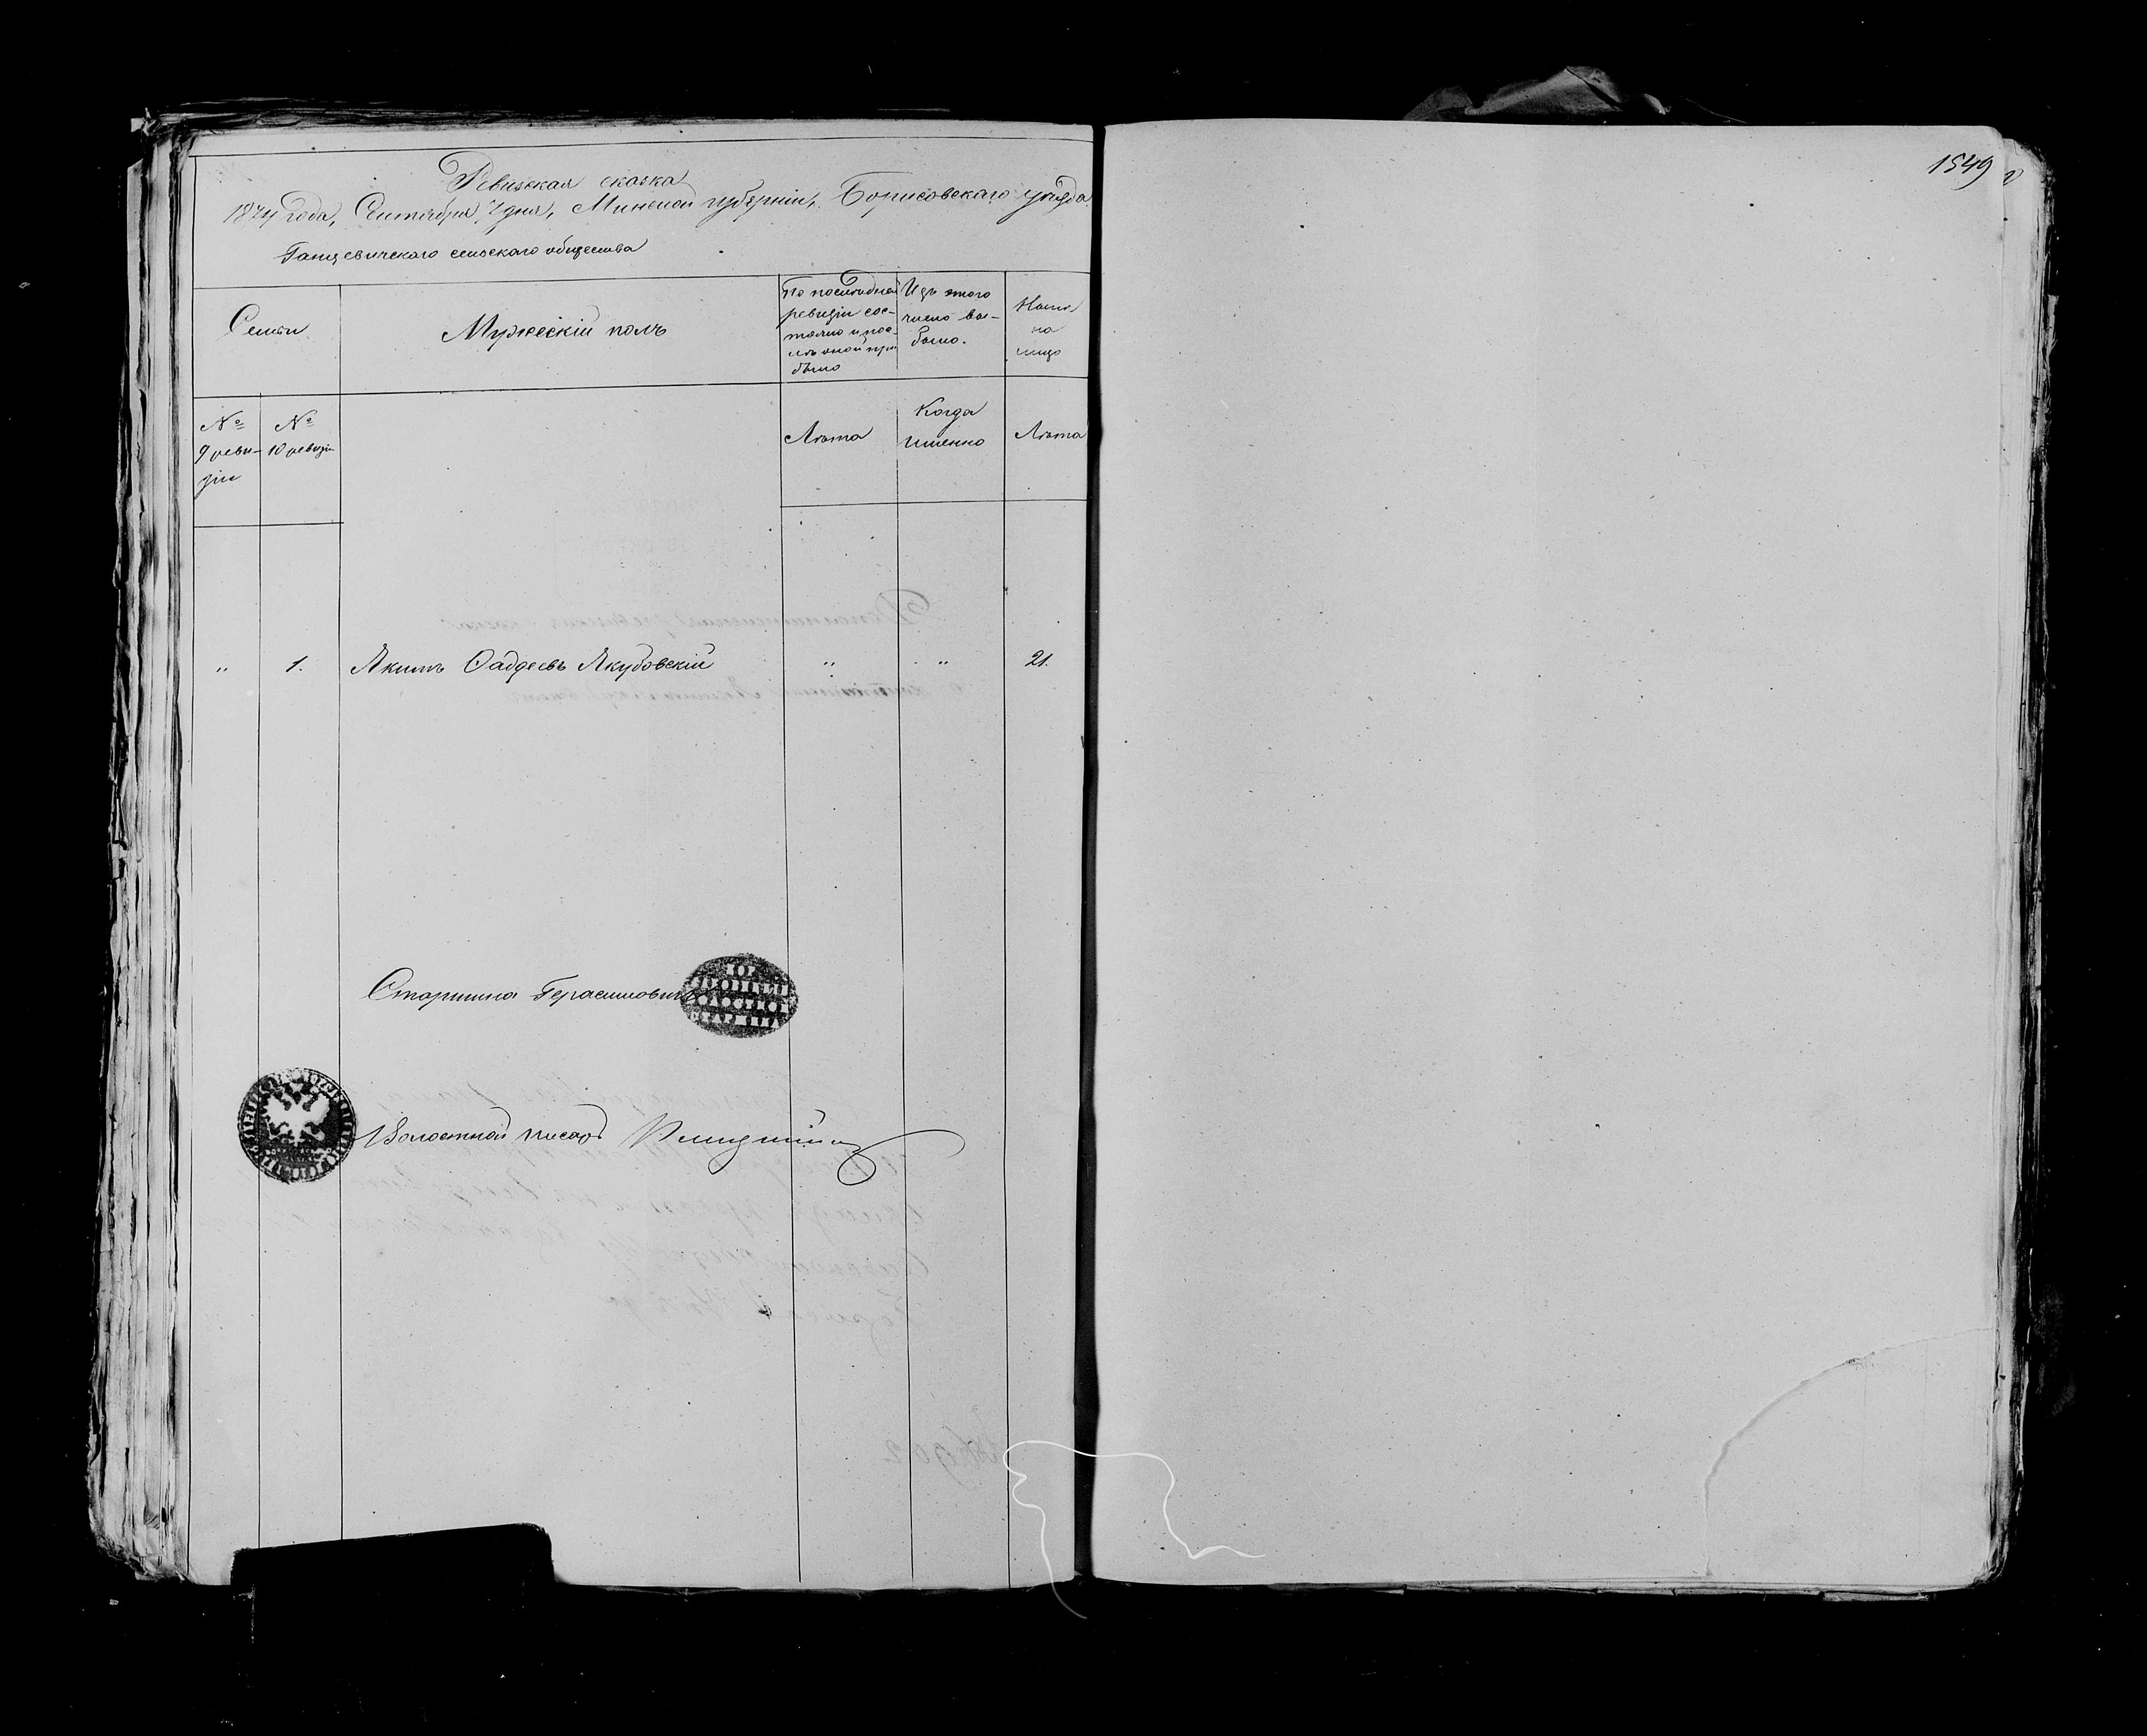 Ревизская сказка
1874 года, Сентября 7 дня, Минской губернiи, Борисовскаго уѣзда
Ганцевичскаго сельскаго общества
Семьи
Мужескiй полъ
По послѣдней
ревизiи сос-
тояло и пос-
лѣ оной при
было
Изъ этого
числа вы-
было.
Нынѣ
на
лицо
№
9 реви-
зiи
№
10 ревизiи
Лѣта
Когда
именно
Лѣта
" 1. Якимъ Ѳадѣевъ Якубовскiй " " 21.
Старшина Герасимовичъ
ВОЛОСТНОЙ
СТАРШИНА
Волостной писарь
1549